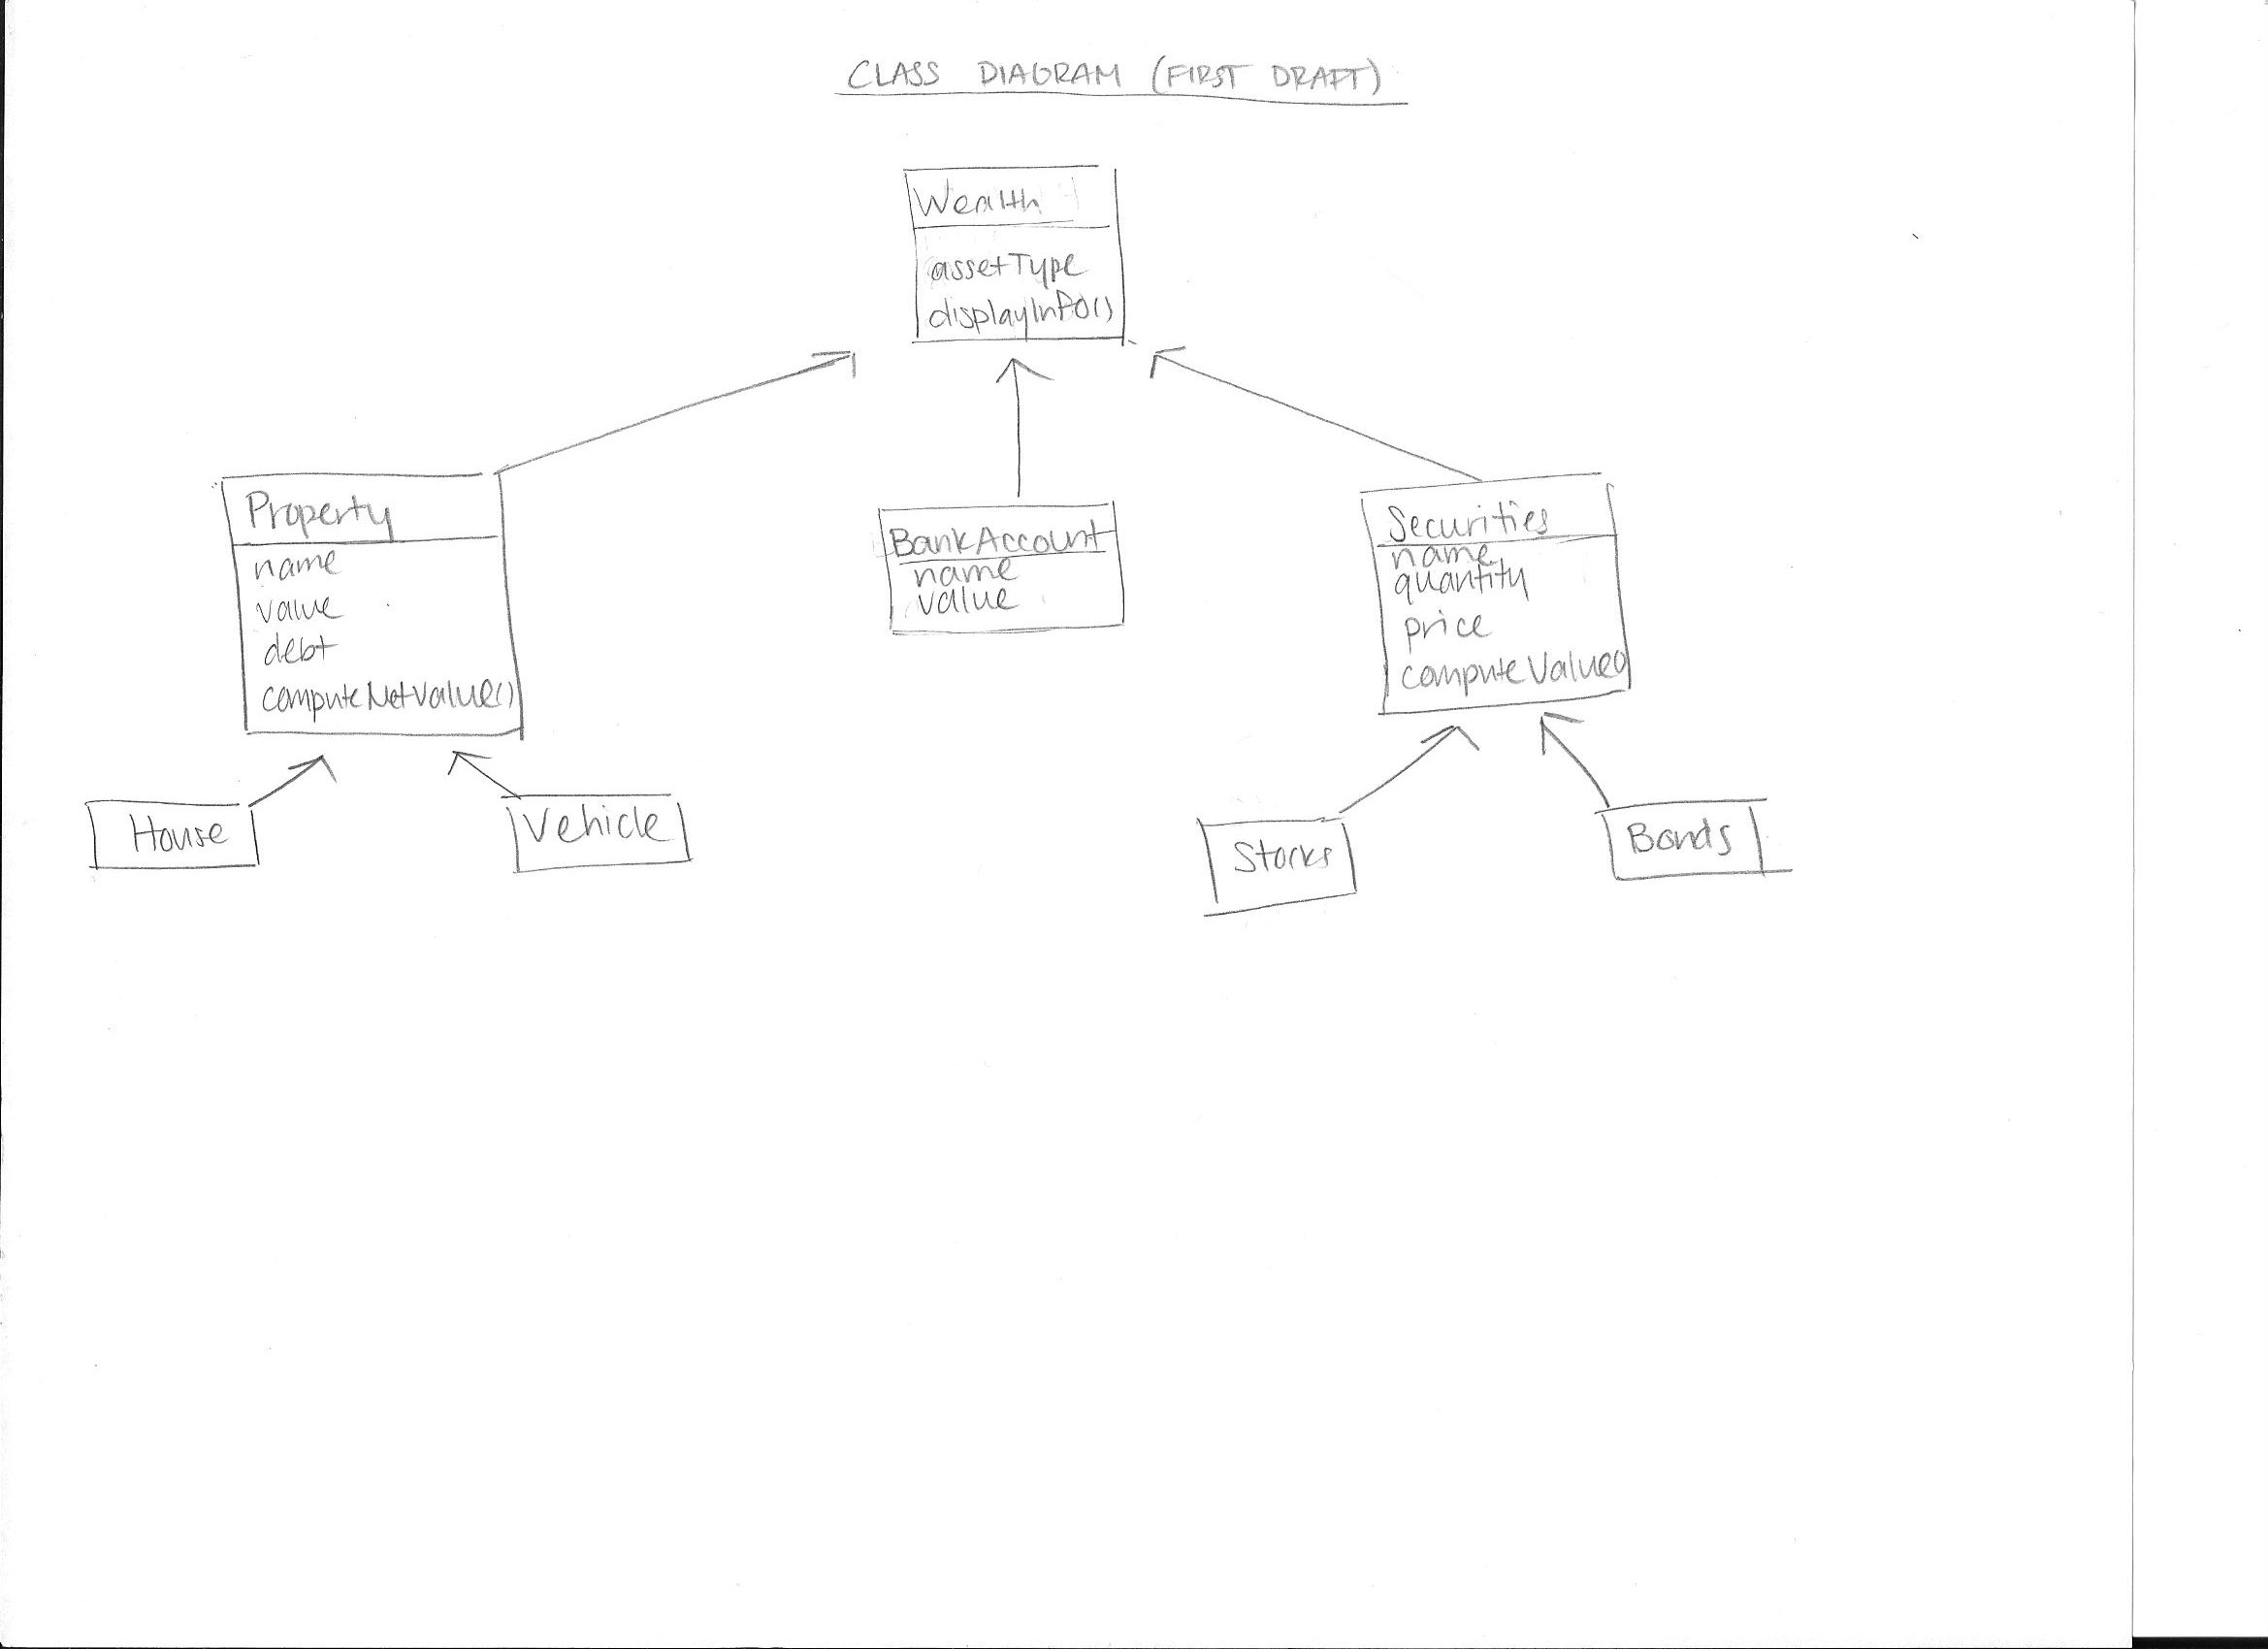 CLASS DIAGRAM (FIRST DRAFT)
Wealth
assetType
displayInfo()
Property
name
value
debt
computeNetValue()
BankAccount
name
value
Securities
name
quantity
price
computeValue()
House
Vehicle
Stocks
Bonds